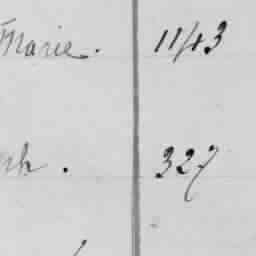 Marie. 1143
ph. 327